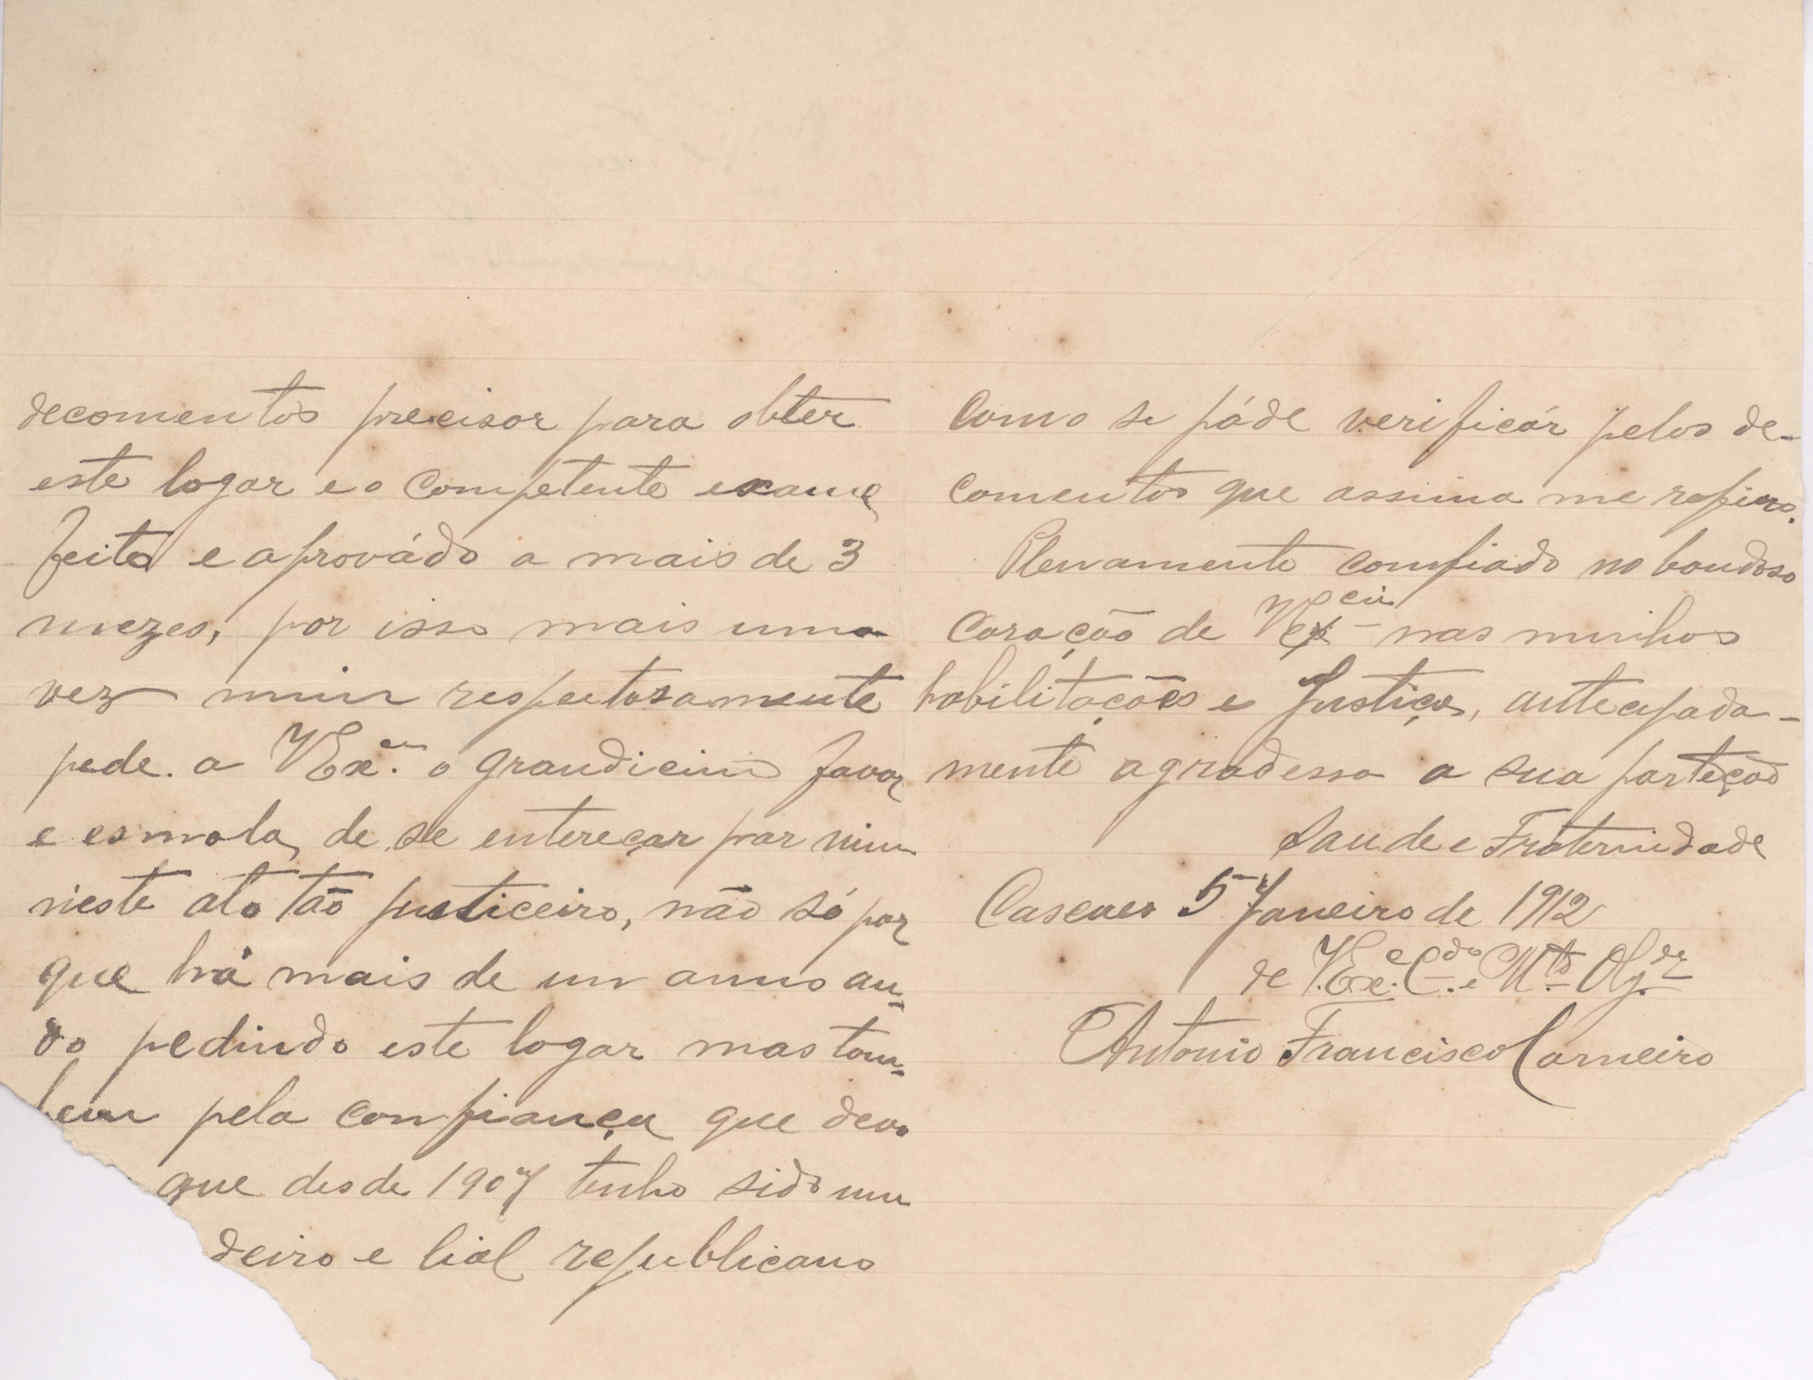 decomentos precisor para obter
este logar e o competente exame
feito e aprovádo a mais de 3
mezes, por isso mais uma
vez mui respeitosamente
pede. a VEx.cia o grandicimo favor
e esmola, de se entereçar por mim
neste ato tão justiceiro, não só por
que há mais de um anno an-
do pedindo este logar mas tam-
bem pela confiança que devo
que desde 1907 tenho sido um
deiro e lial republicano
Como se póde verificár pelos de-
comentos que assima me refiro.
Plenamente comfiado no bondoso
Coração de VEx.cia nas minhas
habilitações e Justiça, antecipada-
mente agradesso a sua parteção
Saude e Fraternidade
Cascaes 5 Janeiro de 1912
de V.Ex.e C.do e M.to Obg.do
Antonio Francisco Carneiro